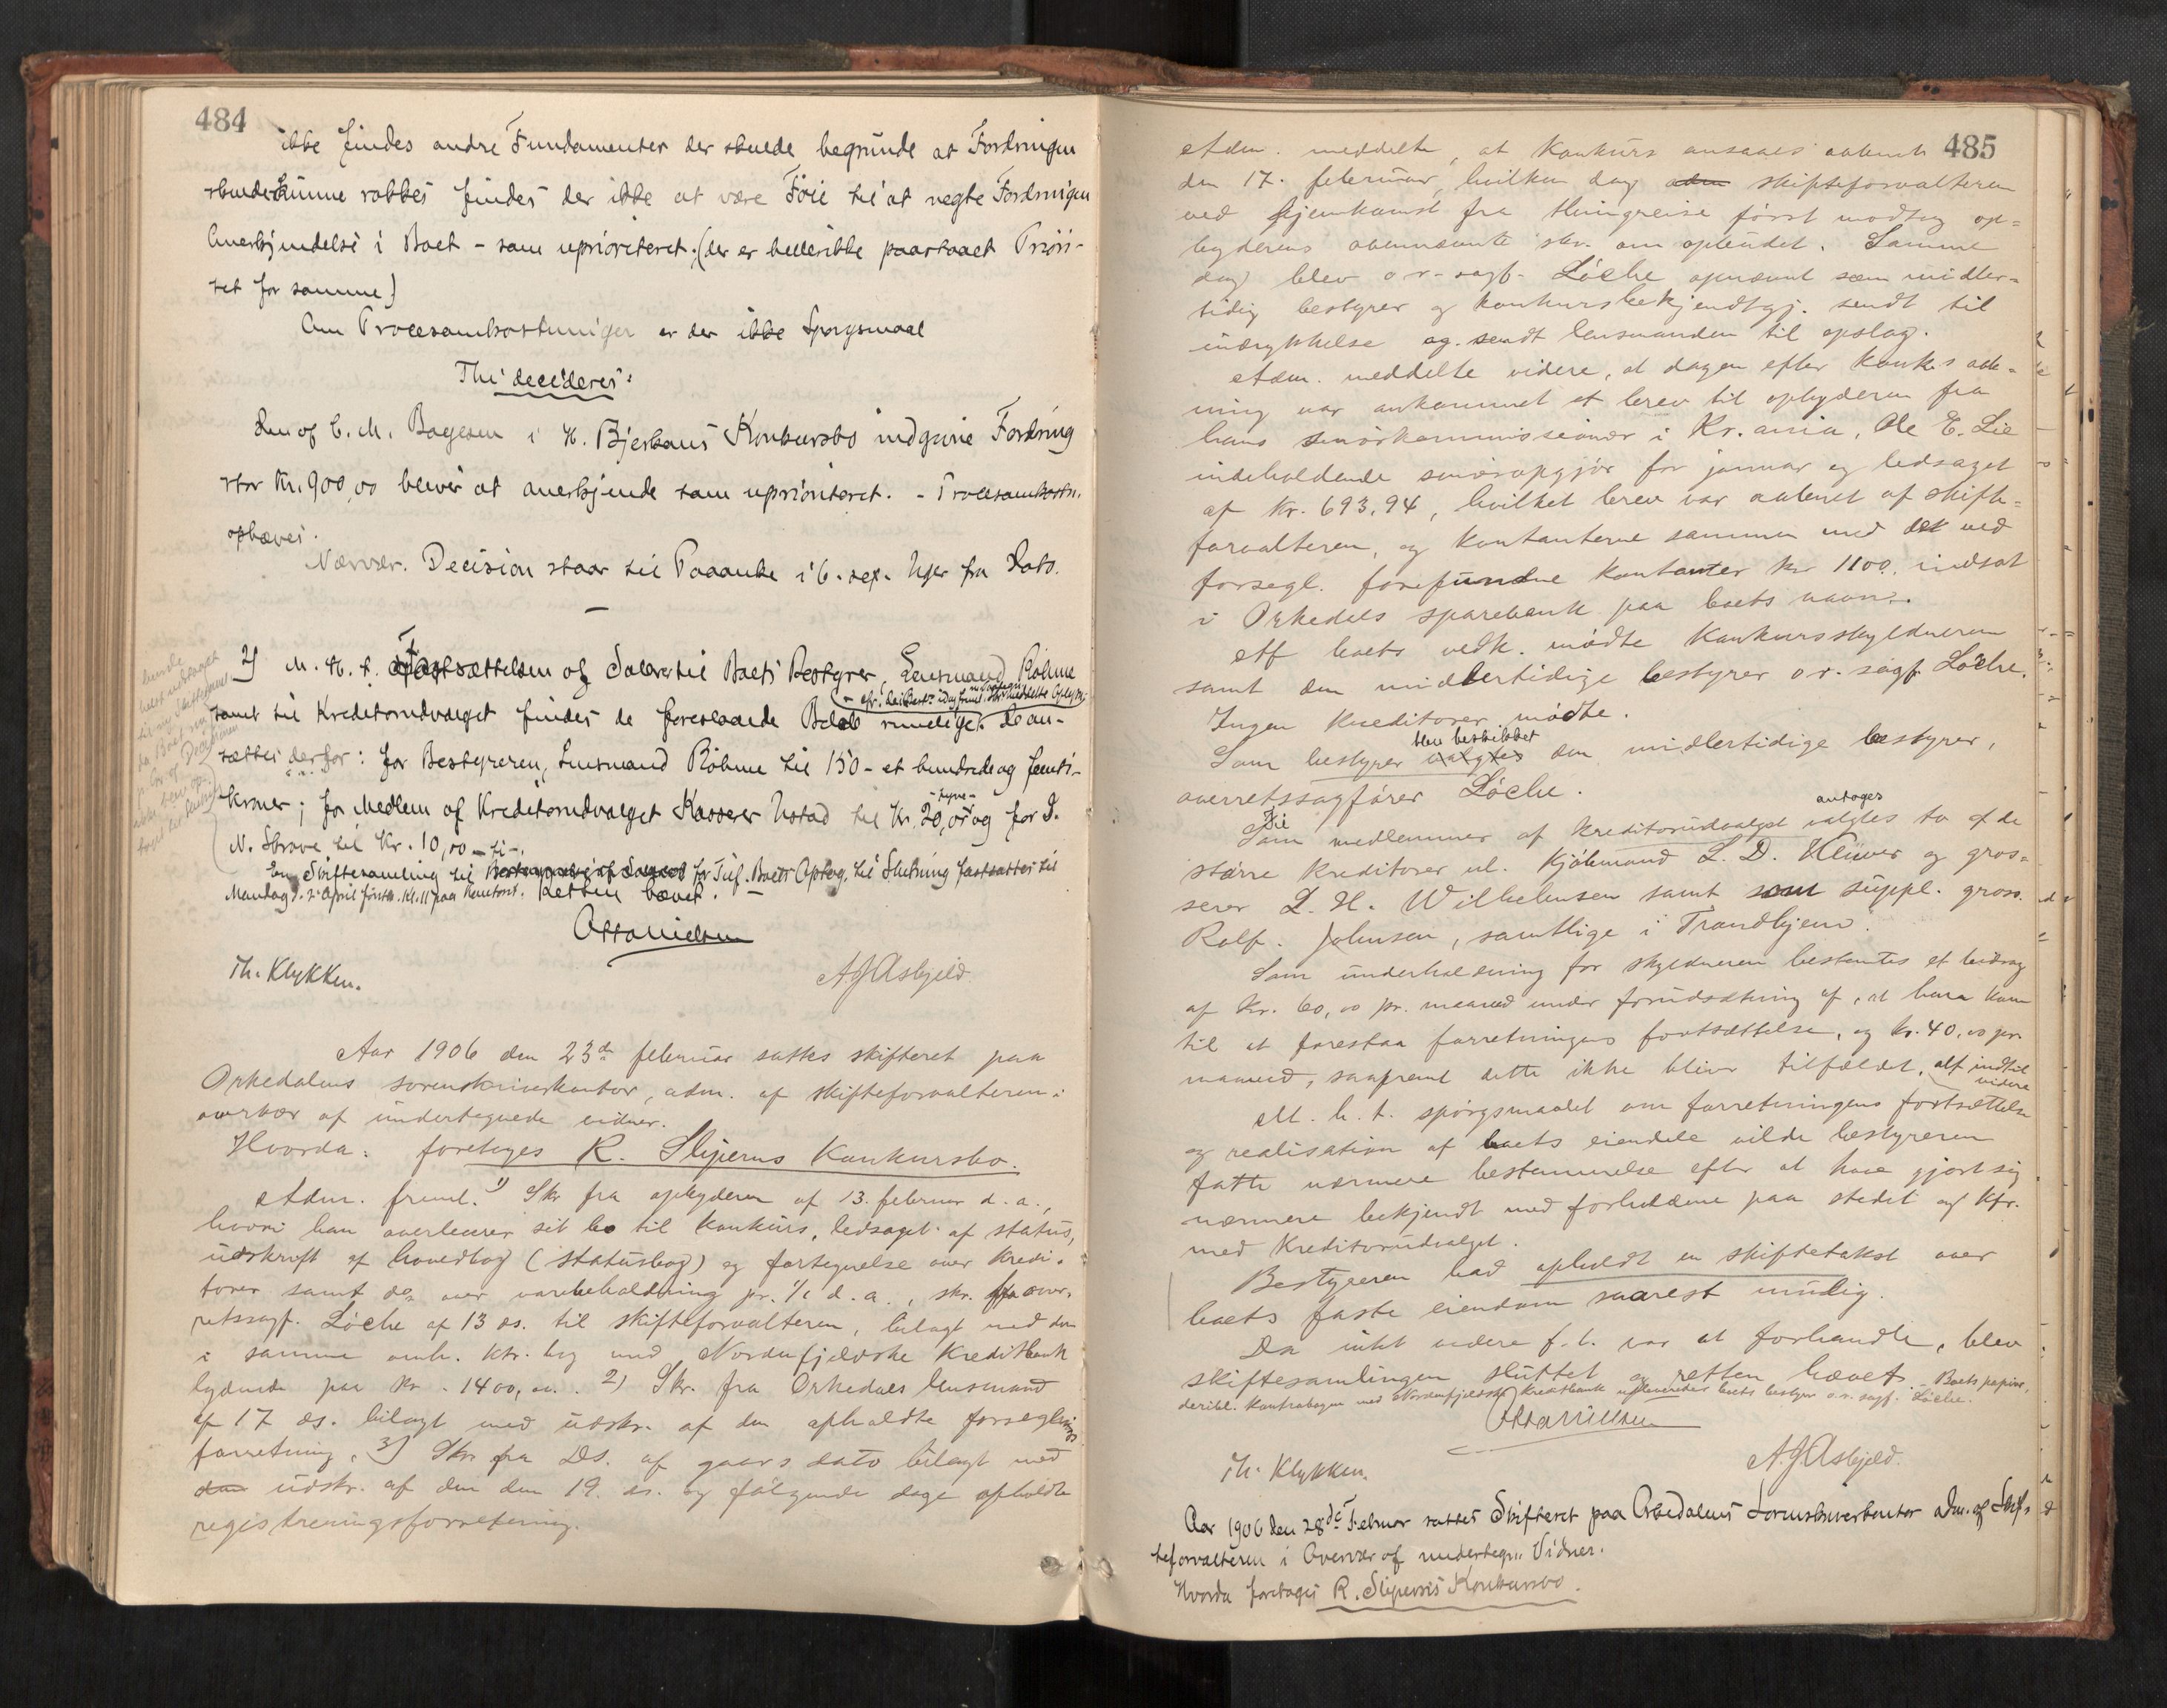 484
ikke findes andre Fundamenter der skulde begrunde at Fordringen
skulde kunne rokkes findes der ikke at være Föie til at negte Fordringen
Anerkjendelse i Boet - som uprioriteret. (der er heller ikke paastaaet Priori-
tet for samme)
Om Procesomkostninger er der ikke Spörgsmaal
Thi decideres:
Den af C. M. Bogesen i H. Bjerkans Konkursbo indgivne Fordring
stor Kr. 900,00 bliver at anerkjende som uprioriteret. - Procesomkostn.
ophæves.
Nærvær. Decision staar til Paaanke i 6 - sex - Uger fra Dato.
2) M. H. t. Fastsættelsen af Salær til Boets Bestyrer, Lensmand Röhme
samt til Kreditorudvalget findes de foreslaaede Beløb rimelige. De an-
sættes derfor: for Bestyreren, Lensmand Röhme til 150 - et hundrede og femti -
kroner; for Medlem af Kreditorudvalget Kasserer Ustad til Kr. 20,00 - tyve - og for I.
N. Skrove til Kr. 10,00 - ti -.
En Skiftesamling til for Tilf. Boets Opgj. til Slutning fastsættes til
Mandag d. 2 April förstk. Kl. 11 paa Kontoret. Retten hævet. -
Otto Nielsen
Th. Klykken. A J Asbjeld.
Aar 1906 den 23de februar sattes skifteret paa
Orkedalens sorenskriverkontor, adm. af skifteforvalteren i
overvær af undertegnede vidner.
Hvorda: foretoges R. Sliperns Konkursbo.
Adm. freml. 1) Skr fra opbyderen af 13. februar d. a.,
hvori han overleverer sit bo til konkurs, ledsaget af status,
udskrift af hovedbog (statusbog) og fortegnelse over kredi-
torer samt do over varebeholdning pr. 1/1 d. a., skr. fra over-
retssagf. Löchs af 13 ds. til skifteforvalteren, bilagt med den
i samme omh. ktr. bog med Nordenfjeldske Kreditbank
lydende paa kr. 1400,00. 2) Skr. fra Orkedals lensmand
af 17 ds. bilagt med udskr. af den afholdte forseglings
forretning, 3) Skr fra Ds. af gaars dato bilagt med
udskr. af den den 19. ds. og fölgende dage afholdte
registreringsforretning.
485
Adm. meddelte, at konkurs ansaaes aabnet
den 17. februar, hvilken dag skifteforvalteren
ved hjemkomst fra thingreise först modtog op-
byderens ovennævnte skr. om opbudet. Samme
dag blev o.r.-sagf. Löchs opnævnt som midler-
tidig bestyrer og konkursbekjendtgj. sendt til
indrykkelse og sendt lensmanden til opslag.
Adm. meddelte videre, at dagen efter konk.s aab-
ning var ankommet et brev til opbyderen fra
hans smörkommissionær i Kr.ania, Ole E. Lie
indeholdende smöropgjör for januar og ledsaget
af kr. 693,94, hvilket brev var aabnet af skifte-
forvalteren, og kontanterne sammen med de ved
forsegl. forefundne kontanter kr 1100. indsat
i Orkedals sparebank paa boets navn.
Af boets vedk. mödte konkursskyldneren
samt den midlertidige bestyrer o.r. sagf. Löchs.
Ingen kreditorer mödte.
Som bestyrer blev beskikket den midlertidige bestyrer,
overretssagförer Löchs.
Til medlemmer af kreditorudvalget antoges to af de
större kreditorer nl. kjöbmand L. D. Klüver og gros-
serer L. H. Wilhelmsen samt som suppl. gross.
Rolf. Johnsen, samtlige i Trondhjem.
Som underholdning for skyldneren bestemtes et bidrag
af kr. 60,00 pr. maaned under forudsætning af, at han kom
til at forestaa forretningens fortsættelse, og kr. 40,00 pr.
maaned, saafremt dette ikke bliver tilfældet, alt indtil
videre
M. h. t. spörgsmaalet om forretningens fortsættelse
og realisation af boets eiendele vilde bestyreren
fatte nærmere bestemmelse efter at have gjort sig
nærmere bekjendt med forholdene paa stedet og kfr.
med kreditorudvalget.
Bestyreren bad afholdt en skiftetakst over
boets faste eiendom snarest mulig.
Da intet videre f. t. var at forhandle, blev
skiftesamlingen sluttet og retten hævet. - Boets papirer,
deribl. kontrabogen med Nordenfjeldske kreditbank udleveredes boets bestyrer o.r. sagf. Löchs.
Otto Nielsen
Th. Klykken. A. J Asbjeld.
Aar 1906 den 28de Februar sattes Skifteret paa Orkedalens Sorenskriverkontor adm. af Skif-
teforvalteren i Overvær af undertegn. Vidner.
Hvorda foretoges R. Slipern's Konkursbo.